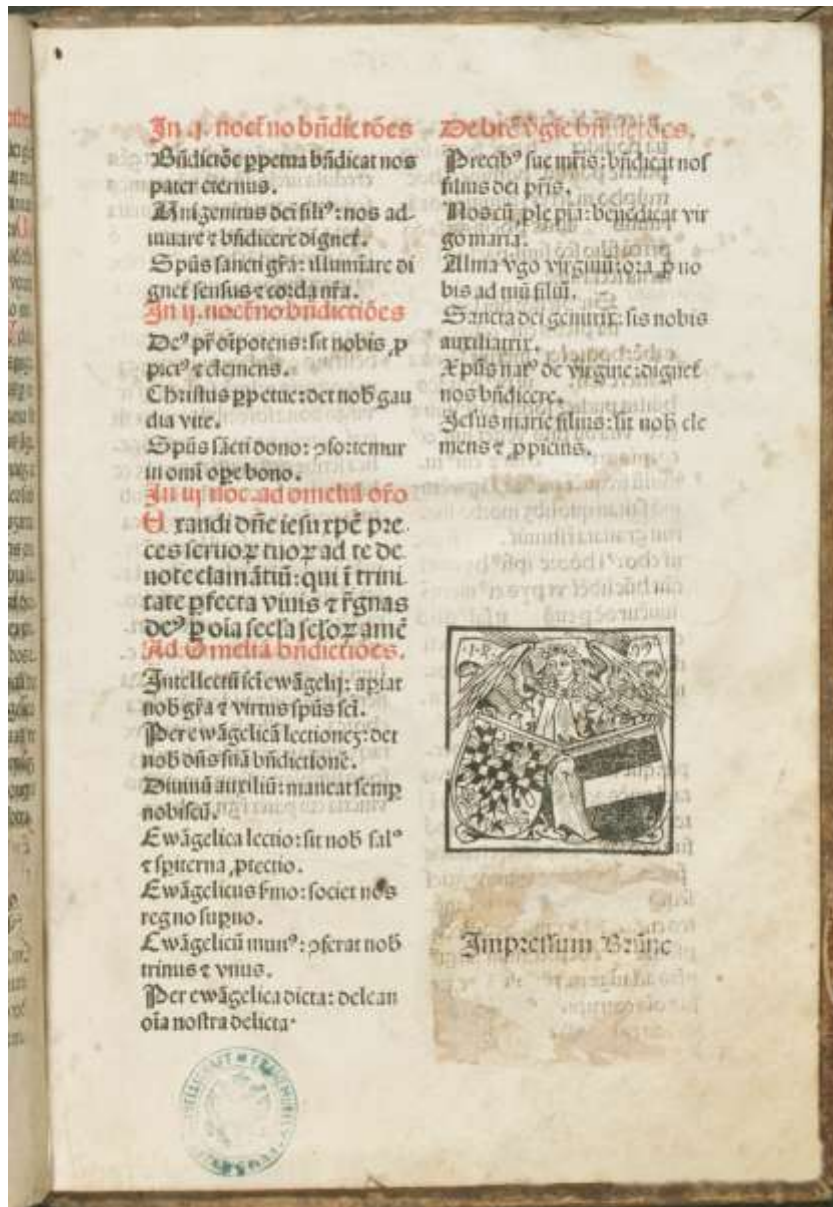 In .j. noct̄no bn̄dictōes
Bn̄dictōe ꝑpetua bn̄dicat nos
pater eternus.
Unigenitus dei filiꝰ: nos ad-
iuuare ⁊ bn̄dicere dignet̄.
Spūs sancti gr̄a: illumīare di
gnet̄ sensus ⁊ corda nr̄a.
In ij. noct̄no bn̄dictiōes
Deꝰ pr̄ oīpotens: sit nobis ꝓ
piciꝰ ⁊ clemens.
Christus ꝑpetue: det nob̄ gau
dia vite.
Spūs sācti dono: ꝯfortemur
in omī oꝑe bono.
In iij noc. ad omeliā or̄o
Exaudi dn̄e iesu xp̄e pre-
ces seruoꝝ tuoꝝ ad te de
uote clamātiū: qui ī trini
tate ꝑfecta viuis ⁊ r̄gnas
deꝰ ꝑ oīa secl̄a scl̄oꝝ amē
Ad Omeliā bn̄dictiōes.
Intellectū sc̄i ewāgelij: aꝑiat
nob̄ gr̄a ⁊ virtus spūs sc̄i.
Per ewāgelicā lectioneꝫ: det
nob̄ dn̄s suā bn̄dictionē.
Diuinū auxiliū: maneat semꝑ
nobiscū.
Ewāgelica lectio: sit nob̄ salꝰ
⁊ sp̄iterna ꝓtectio.
Ewāgelicus s̄mo: societ nos
regno suꝑno.
Ewāgelicū munꝰ: ꝯferat nob̄
trinus ⁊ vnus.
Per ewāgelica dicta: delean
oīa nostra delicta.
De btē v̄gīe bn̄dictōes.
Precibꝰ sue mr̄is: bn̄dicat nos
filius dei pr̄is.
Nos cū ꝓle pia: benedicat vir
go maria.
Alma v̄go virginū: ora ꝓ no
bis ad tuū filiū.
Sancta dei genitrix: sis nobis
auxiliatrix.
Xp̄us natꝰ de virgine: dignet̄
nos bn̄dicere.
Jesus marie filius: sit nob̄ cle
mens ⁊ ꝓpicius.
Impressum Brūne